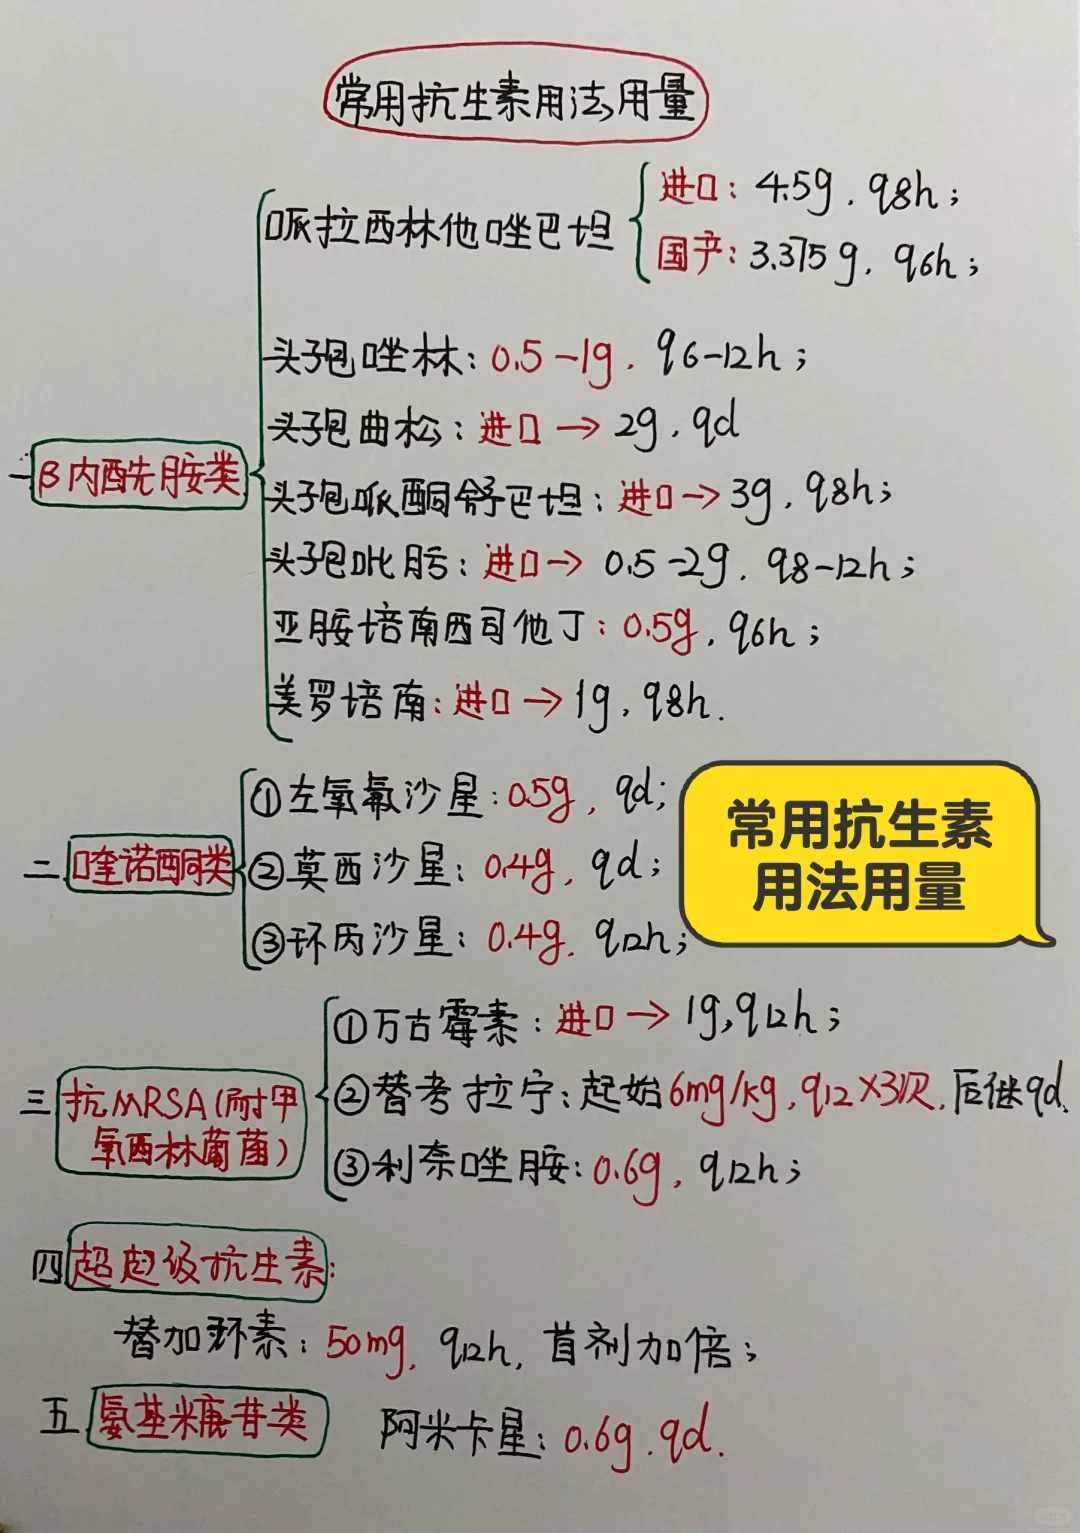 常用抗生素用法用量
一.β内酰胺类
哌拉西林他唑巴坦
进口：4.5g，q8h；
国产：3.375g，q6h；
头孢唑林：0.5-1g，q6-12h；
头孢曲松：进口→2g，qd
头孢哌酮舒巴坦：进口→3g，q8h；
头孢吡肟：进口→0.5-2g，q8-12h；
亚胺培南西司他丁：0.5g，q6h；
美罗培南：进口→1g，q8h.
二.喹诺酮类
①左氧氟沙星：0.5g，qd；
②莫西沙星：0.4g，qd；
③环丙沙星：0.4g，q12h；
常用抗生素
用法用量
三.抗MRSA（耐甲
氧西林葡菌）
①万古霉素：进口→1g，q12h；
②替考拉宁：起始6mg/kg，q12×3次，后继qd.
③利奈唑胺：0.6g，q12h；
四.超超级抗生素：
替加环素：50mg，q12h，首剂加倍；
五.氨基糖苷类
阿米卡星：0.6g，qd.